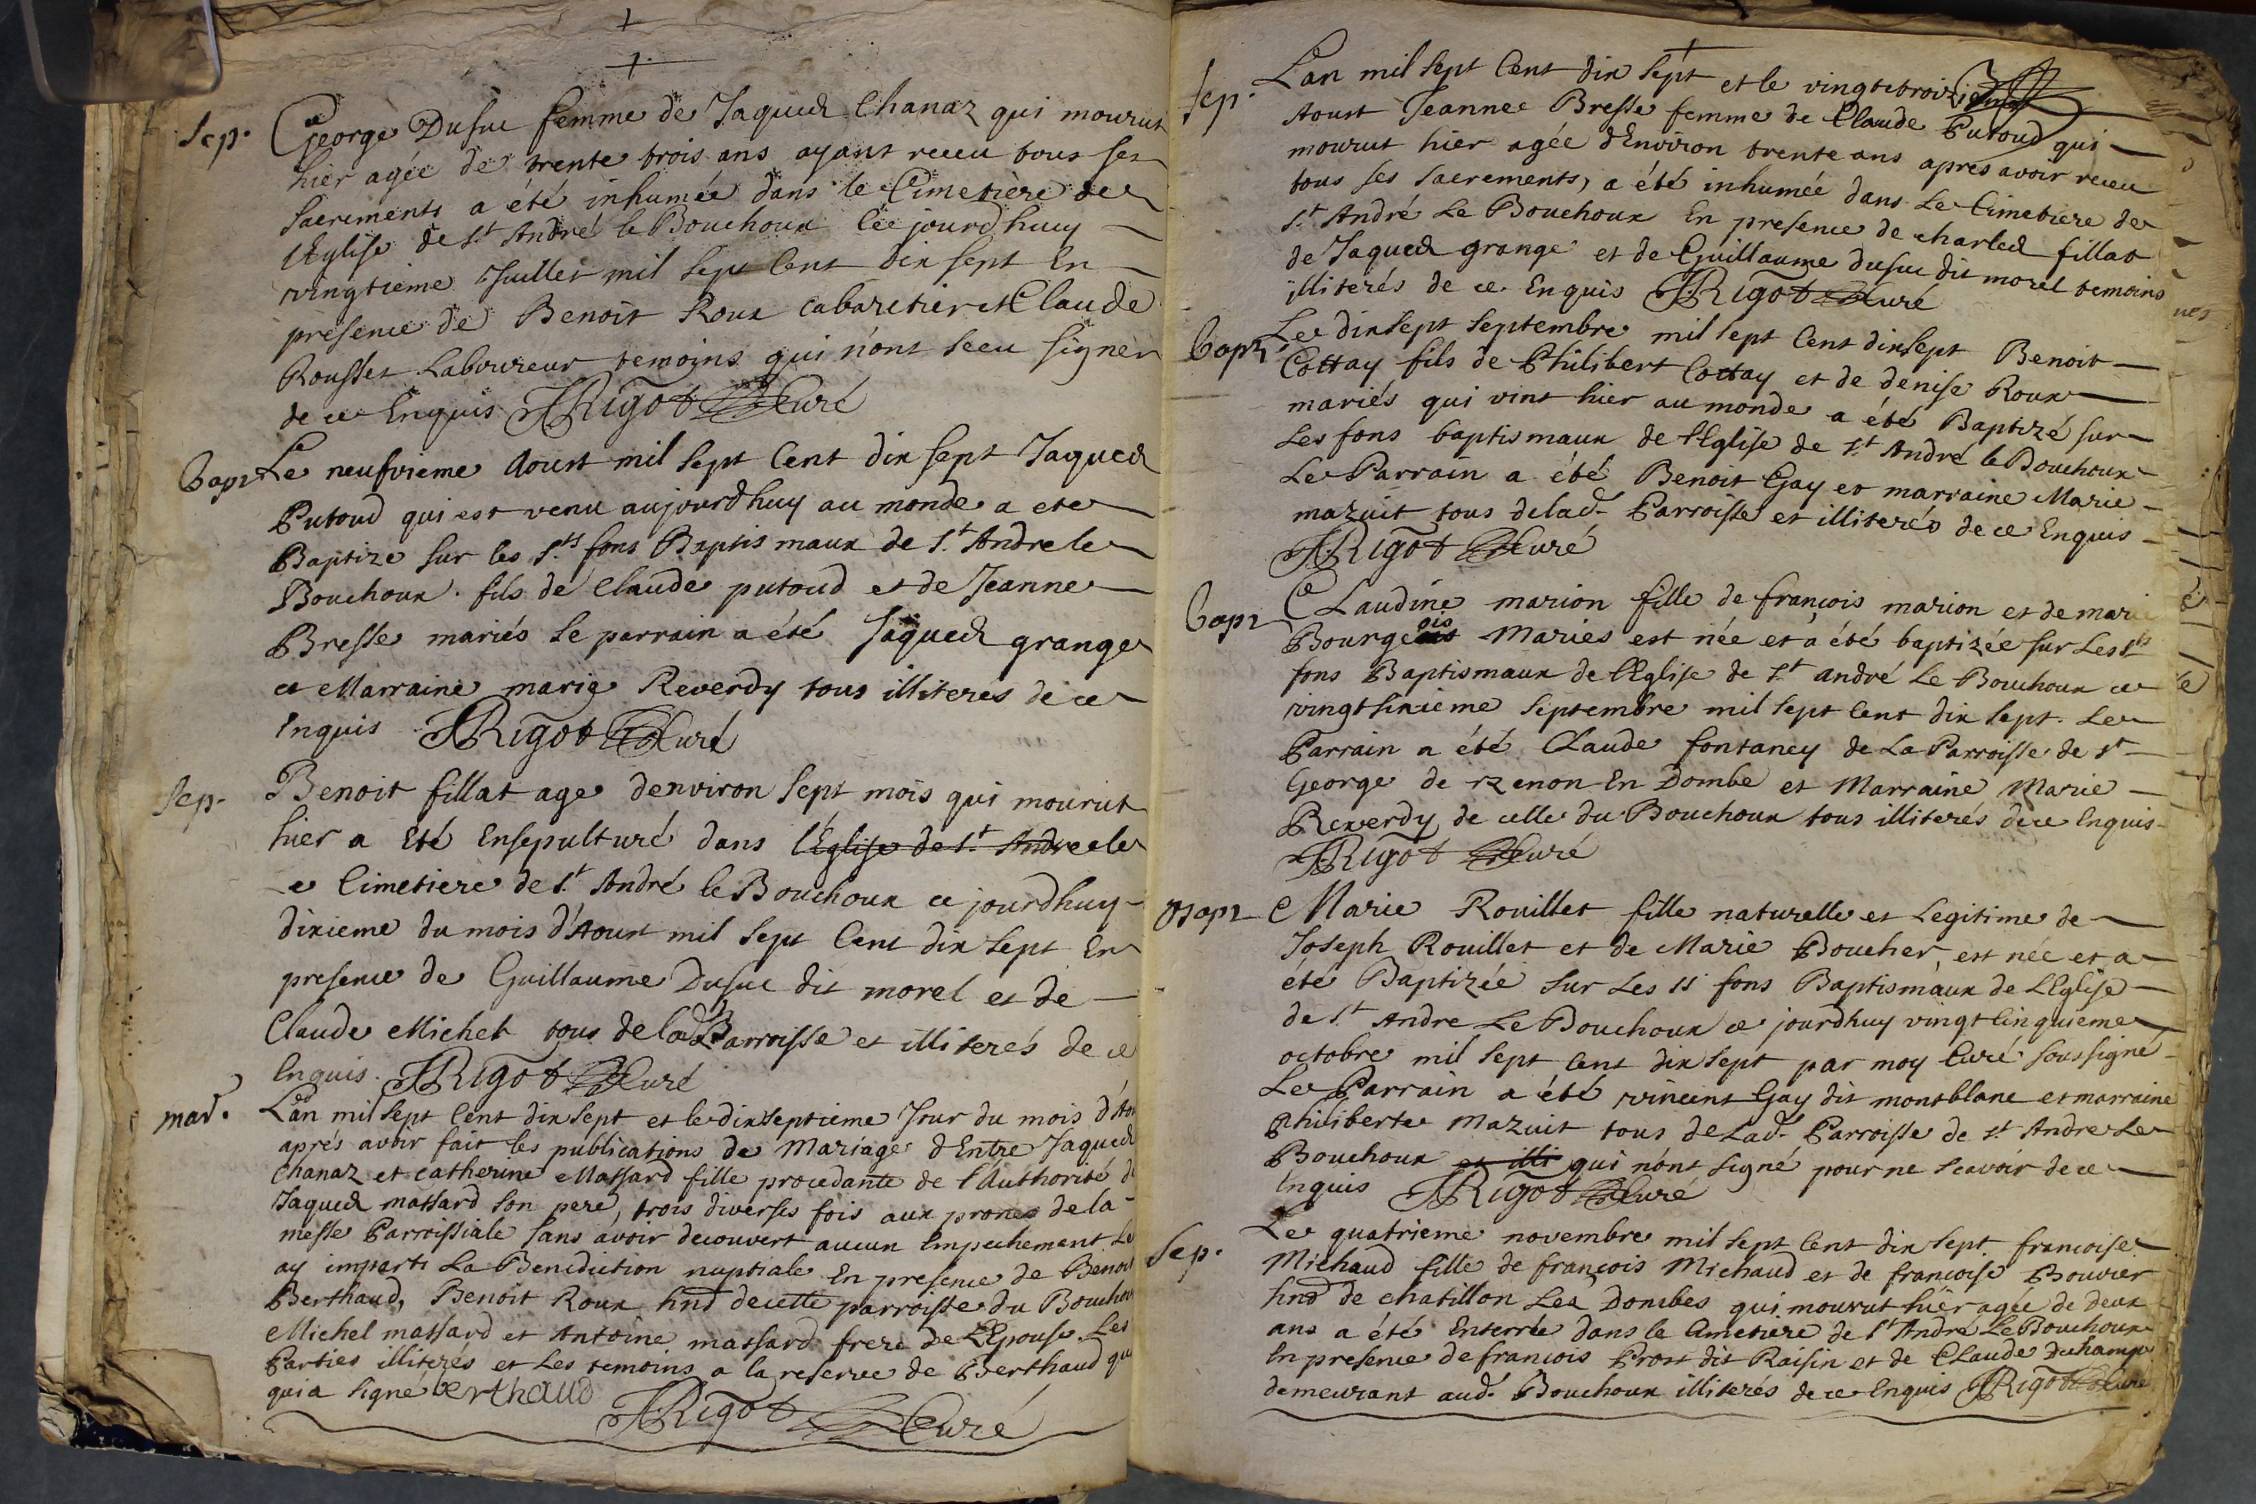 Sep.
George Dusuc femme de Jaques Chanaz qui mourut
hier agée de trente trois ans ayant receu tous ses
sacrements a été inhumée dans le Cimetière de
l'Eglise de St André le Bouchoux ce jourdhuy
vingtieme Juillet mil sept cent dix sept En
presence de Benoit Roux cabaretier et Claude
Rousset Laboureur temoins qui n'ont sceu signer
de ce Enquis JRigot Curé
Bapt
Le neufvieme Aoust mil sept cent dix sept Jaques
Putoud qui est venu aujourdhuy au monde a ete
Baptize sur les Sts fons Baptismaux de St Andre le
Bouchoux. fils de Claude putoud et de Jeanne
Bresse mariés le parrain a été Jaques grange
et Marraine marie Reverdy tous illiteres de ce
Enquis JRigot Curé
Sep.
Benoit fillat age denviron sept mois qui mourut
hier a Eté Ensepulturé dans l'Eglise de St Andre le
e Cimetiere de St André le Bouchoux ce jourdhuy
dixieme du mois d'Aoust mil sept cent dix sept En
presence de Guillaume Dusuc dit morel et de
Claude Michel tous de lad Parroisse et illiterés de ce
Enquis. JRigot Curé
mar.
L'an mil sept cent dix sept et le dixseptieme Jour du mois d'Aou
aprés avoir fait les publications de Mariage d'Entre Jaques
Chanaz et Catherine Massard fille procedante de l'Authorité d
Jaques massard son pere, trois diverses fois aux prones de la
messe Parroissiale sans avoir decouvert aucun Empechement Le
ay imparti La Benediction nuptiale En presence de Benoit
Berthaud, Benoit Roux hnd de cette parroisse du Bouchou
Michel massard et Antoine massard frere de L'Epouse. Les
Parties illiterés et Les temoins a la reserve de Berthaud qu
qui a signé berthaud
JRigot Curé
Sep.
L'an mil sept Cent dix sept et le vingttroizieme
Aoust Jeanne Bresse femme de Claude Putoud qui
mourut hier agée d'Environ trente ans apres avoir receu
tous ses sacrements, a été inhumée dans Le Cimetiere de
St André Le Bouchoux En presence de charles fillat
de Jaques grange et de Guillaume dusuc dit morel temoins
illiterés de ce Enquis JRigot Curé
Bapt
Le dixsept septembre mil sept Cent dixsept Benoit
Cottay fils de Philibert Cottay et de denise Roux
mariés qui vint hier au monde a été Baptizé sur
Les fons baptismaux de l'Eglise de St André le Bouchoux
Le Parrain a été Benoit Gay et marraine Marie
mazuit tous de lad. Parroisse et illiterés de ce Enquis
JRigot Curé
Bapt
Claudine marion fille de françois marion et de marie
Bourgeois Mariés est née et a été baptizée sur Les Sts
fons Baptismaux de l'Eglise de St andré Le Bouchoux ce
vingt sixieme septembre mil sept Cent dix sept. Le
Parrain a été Claude fontaney de La Parroisse de St
George de rzenon En Dombe et Marraine Marie
Reverdy de celle du Bouchoux tous illiterés de ce Enquis
JRigot Curé
Bapt
Marie Rouillet fille naturelle et Legitime de
Joseph Rouillet et de Marie Boucher, est née et a
été Baptizée sur Les SS fons Baptismaux de L'Eglise
de St Andre Le Bouchoux ce jourdhuy vingt Cinquieme
octobre mil sept cent dix sept par moy Curé soussigné
Le Parrain a été vincent Gay dit montblanc et marraine
Philiberte Mazuit tous de Lad. Parroisse de St Andre Le
Bouchoux et illi qui n'ont signé pour ne scavoir de ce
Enquis JRigot Curé
Sep.
Le quatrieme novembre mil sept cent dix sept francoise
Michaud fille de françois Michaud et de francoise Bouvier
hnd de chatillon Les Dombes qui mourut hier agée de deux
ans a été Enterrée dans le Cimetiere de St André Le Bouchoux
En presence de francois Prost dit Raisin et de Claude Duchamp
demeurant aud. Bouchoux illiterés de ce Enquis JRigot Curé